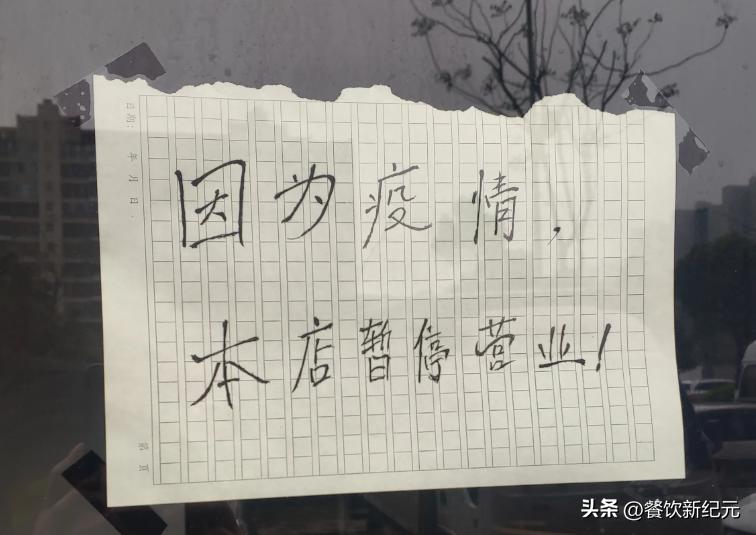 因为疫情，
本店暂停营业！
日期： 年 月 日
第 页
头条 @餐饮新纪元